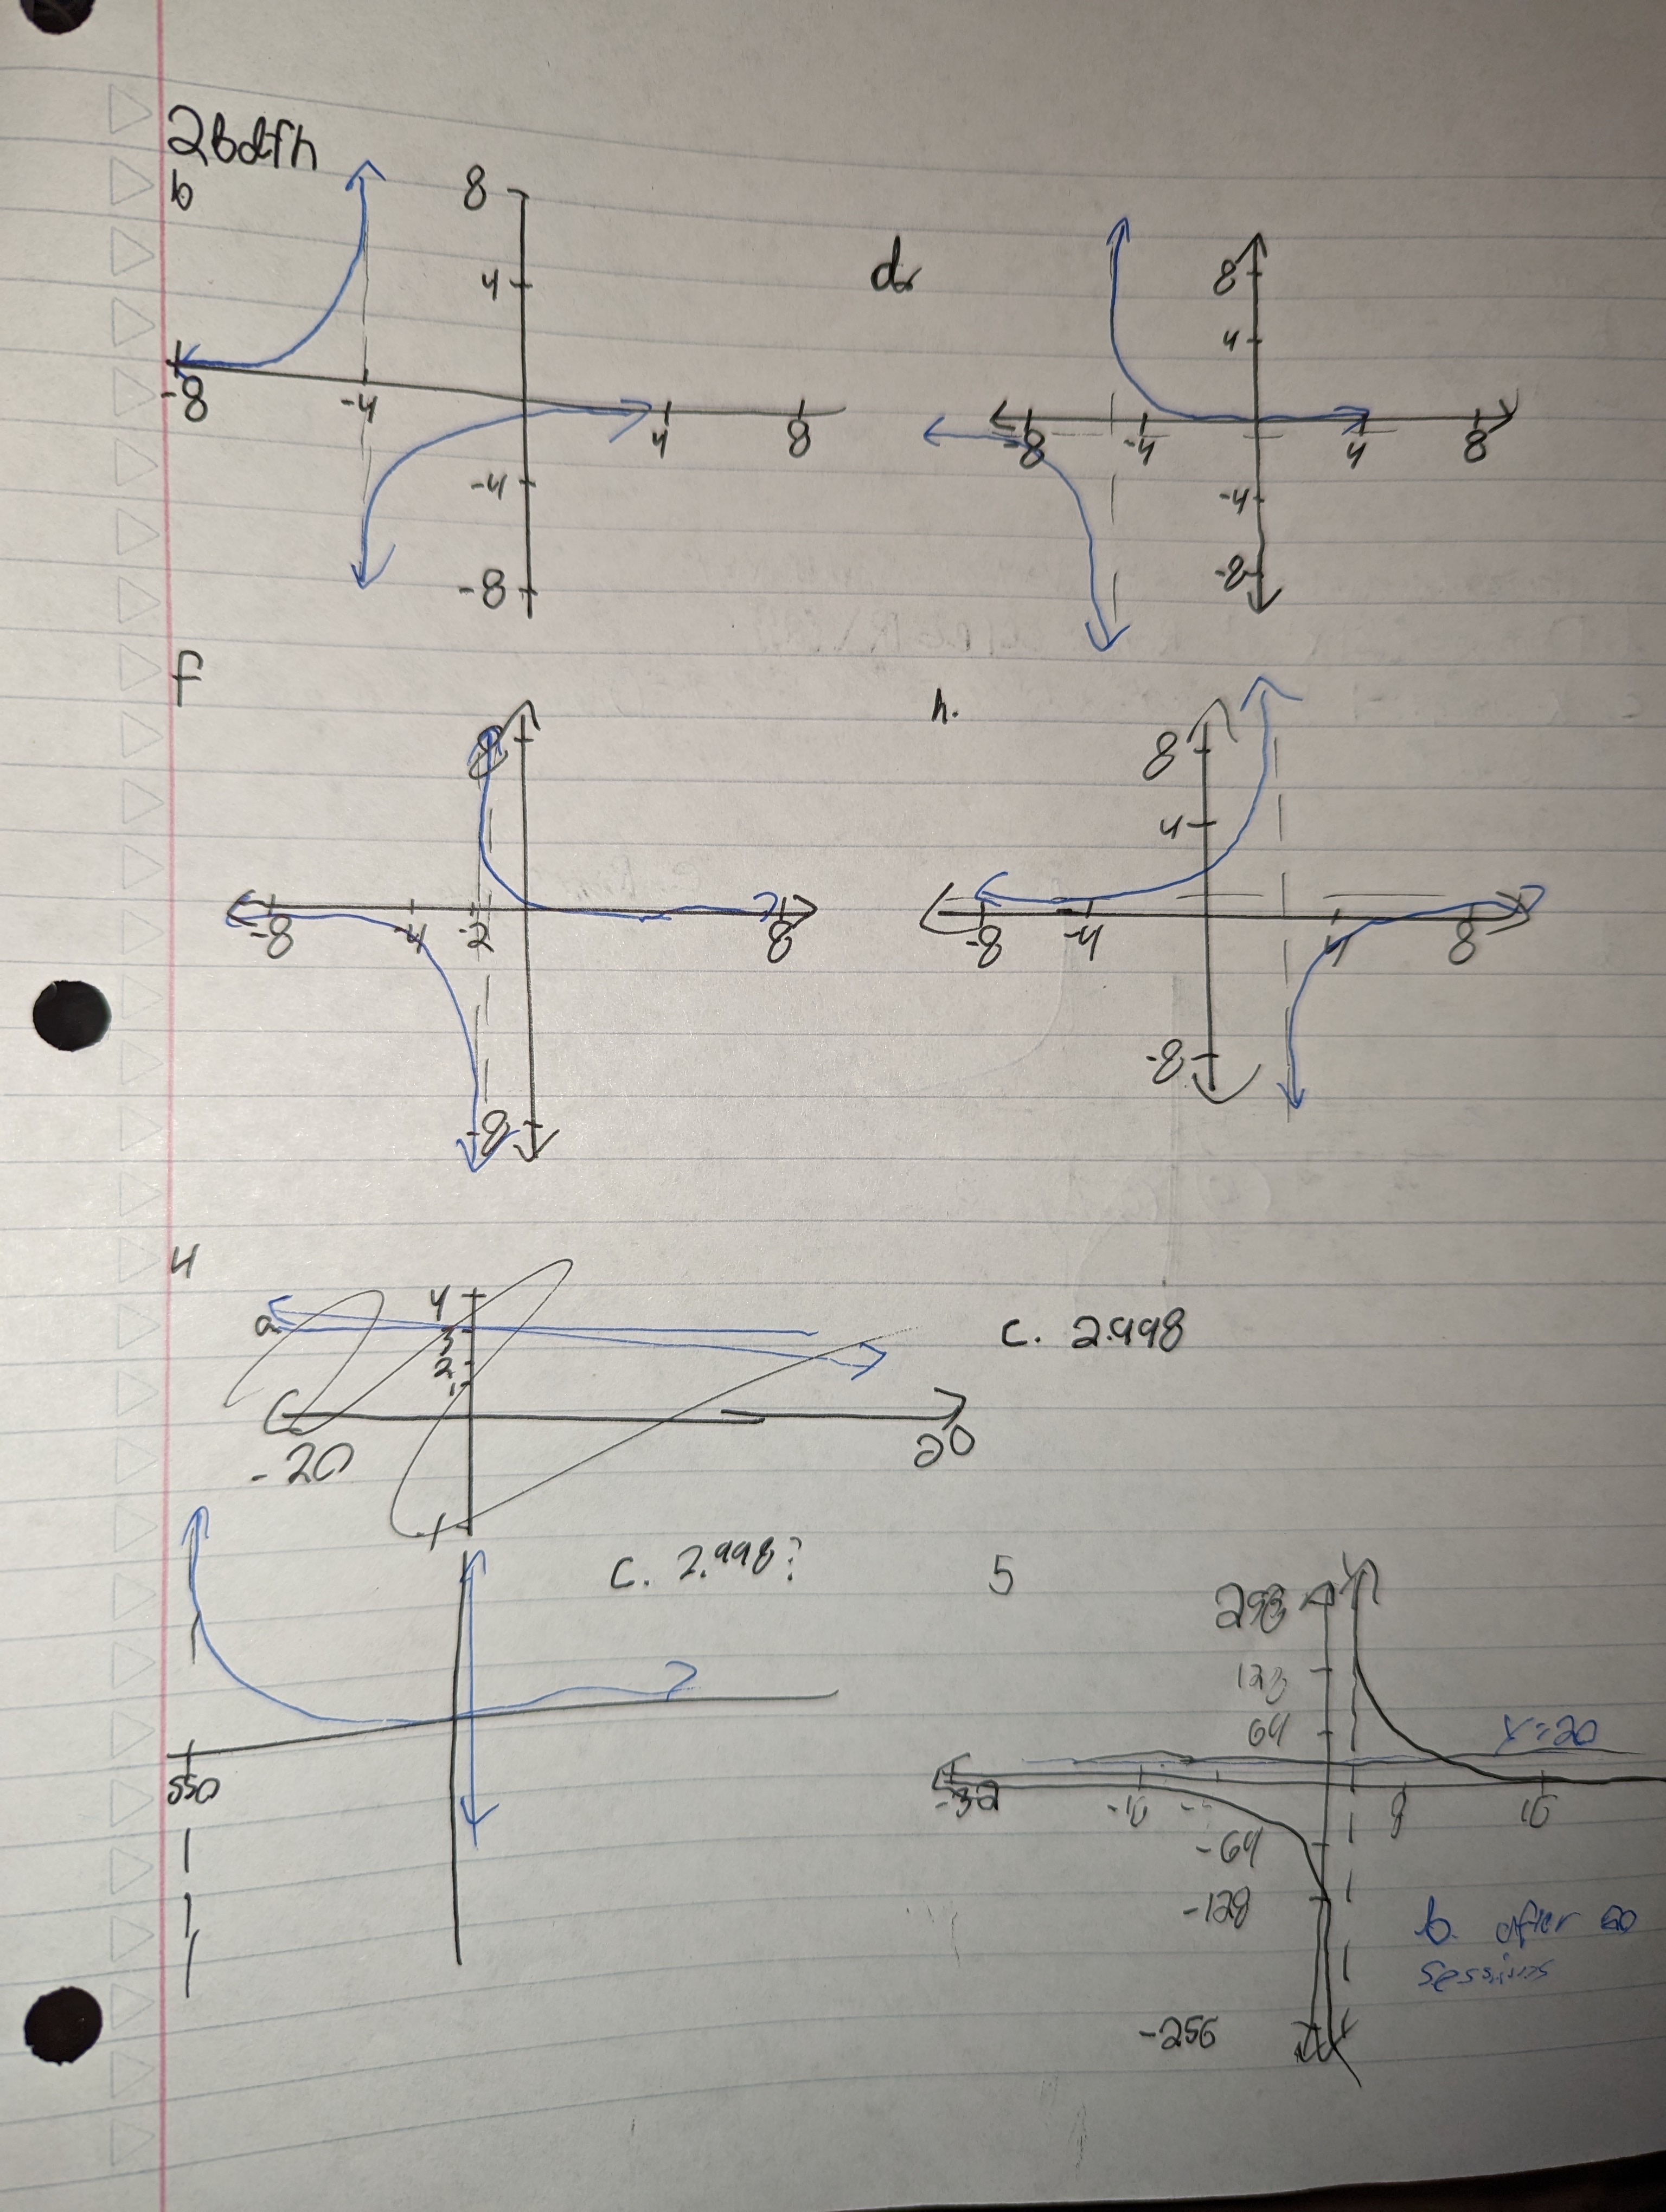 2bdfh
b
8
4
-8
-4
4
8
-4
-8
d.
8
4
-8
-4
4
8
-4
-8
f
8
-8
-4
-2
8
-8
h.
8
4
-8
-4
4
8
-8
4
a.
4
3
2
1
-20
20
c. 2.998
c. 2.998?
550
5
128
64
y=20
-32
-16
8
16
-64
-128
-256
b. after
sessions